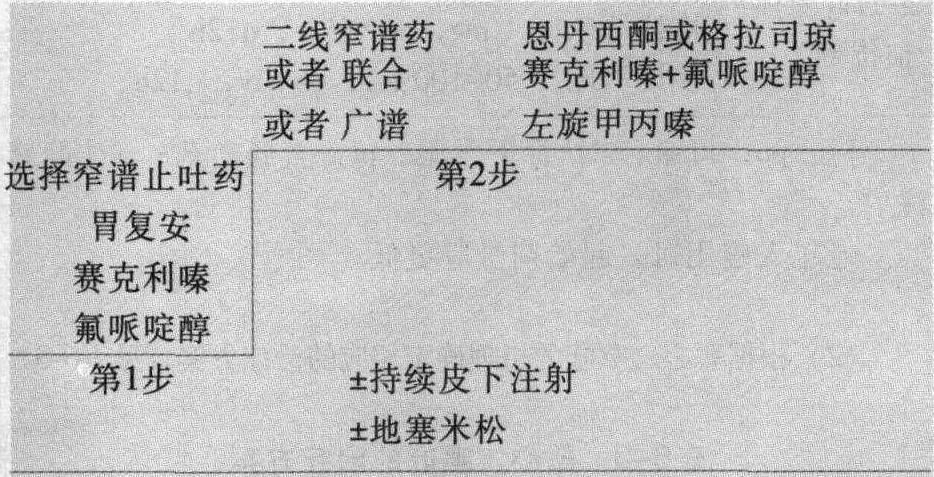 二线窄谱药 恩丹西酮或格拉司琼
或者 联合 赛克利嗪+氟哌啶醇
或者 广谱 左旋甲丙嗪
选择窄谱止吐药 第2步
胃复安
赛克利嗪
氟哌啶醇
第1步 ±持续皮下注射
±地塞米松